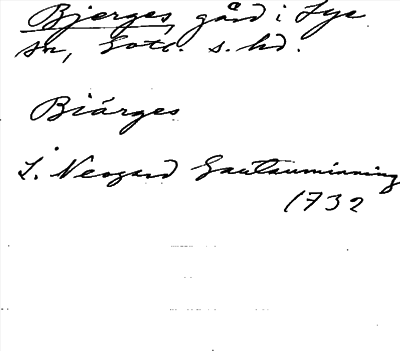 Bjerges, gård i Lye
sn, Gotl. s. hd.
Biärges
J. Neogard Gautauminning
1732